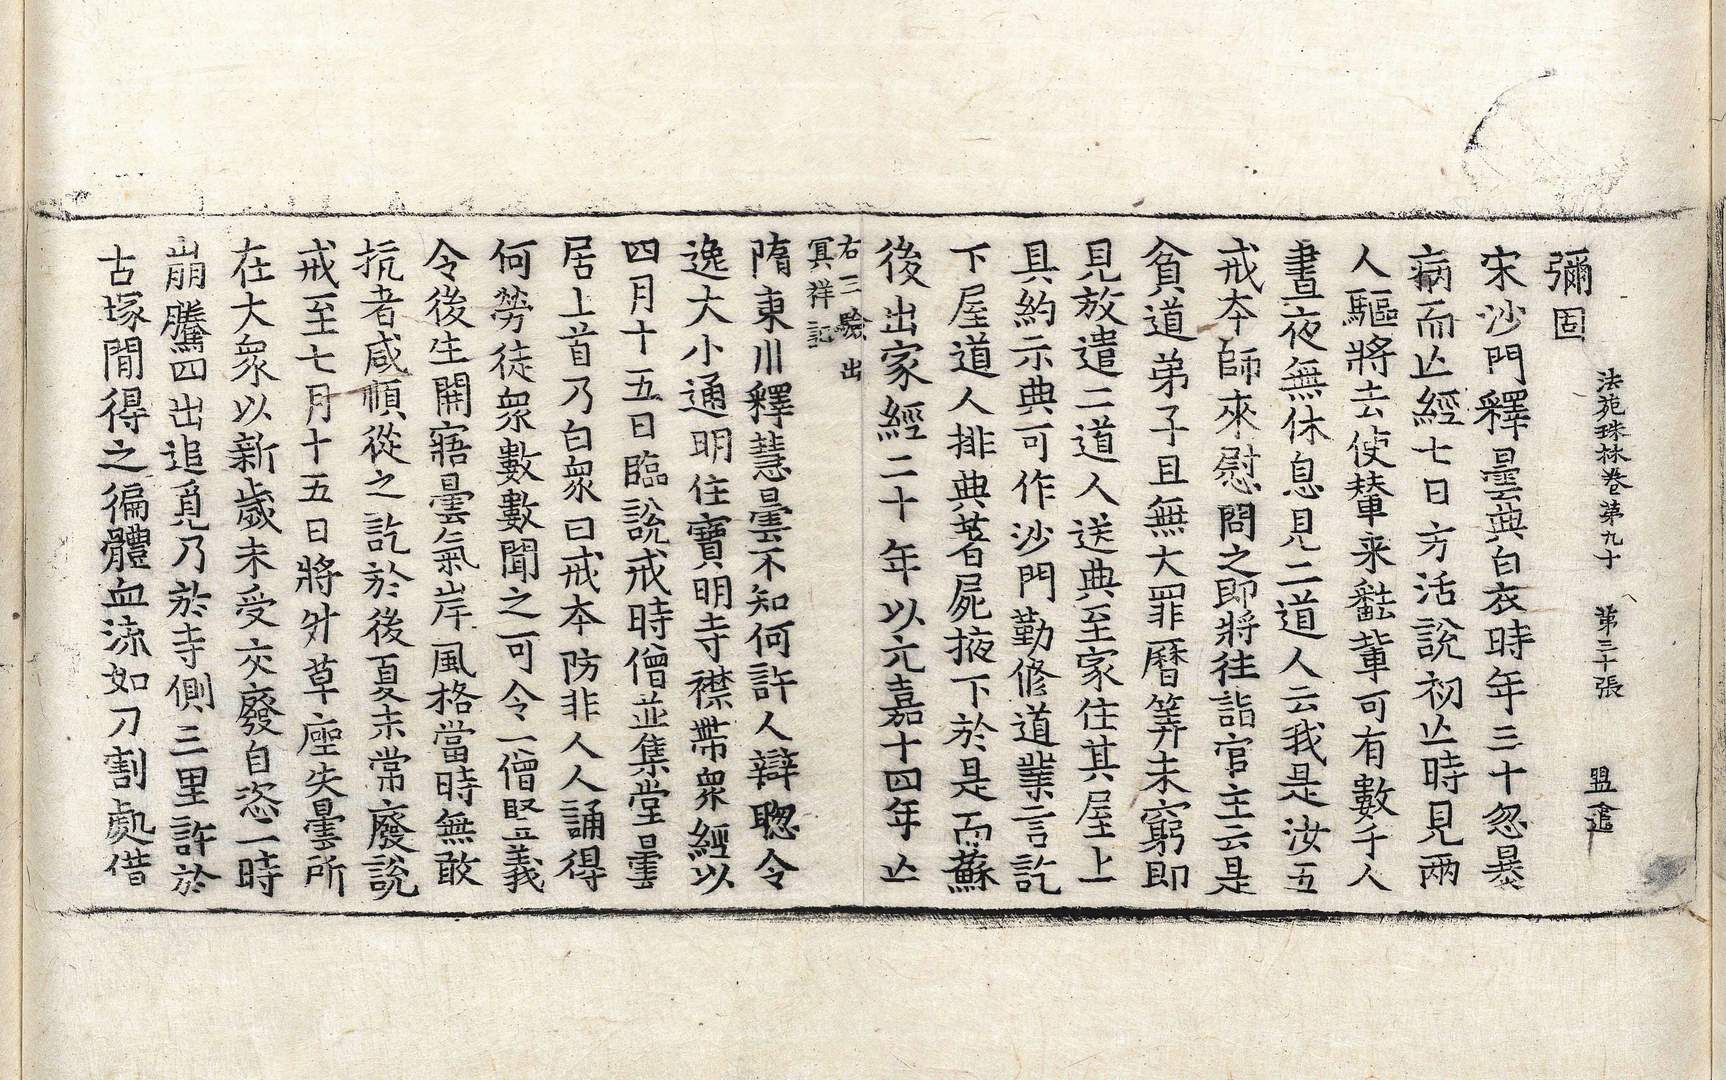 法苑珠林卷第九十　第三十張　盟
彌固
宋沙門釋曇典白衣時年三十忽暴
病而亾經七日方活說初亾時見兩
人驅將去使輦来𪍿輩可有數千人
晝夜無休息見二道人云我是汝五
戒夲師來慰問之即將往詣官主云是
貧道弟子且無大罪曆筭未窮即
見放遣二道人送典至家住其屋上
具約示典可作沙門勤修道業言訖
下屋道人排典著屍掖下於是而蘇
後出家經二十年以元嘉十四年亾
右三驗出
冥祥記
隋東川釋慧曇不知何許人辯聦令
逸大小通明住寶明寺襟帶衆經以
四月十五日臨說戒時僧並集堂曇
居上首乃白衆曰戒本防非人人誦得
何勞徒衆數數聞之可令一僧竪義
令後生開寤曇氣岸風格當時無敢
抗者咸順從之訖於後夏末常廢說
戒至七月十五日將昇草座失曇所
在大衆以新歲未受交廢自恣一時
崩騰四出追覓乃於寺側三里許於
古塚閒得之徧體血流如刀割處借